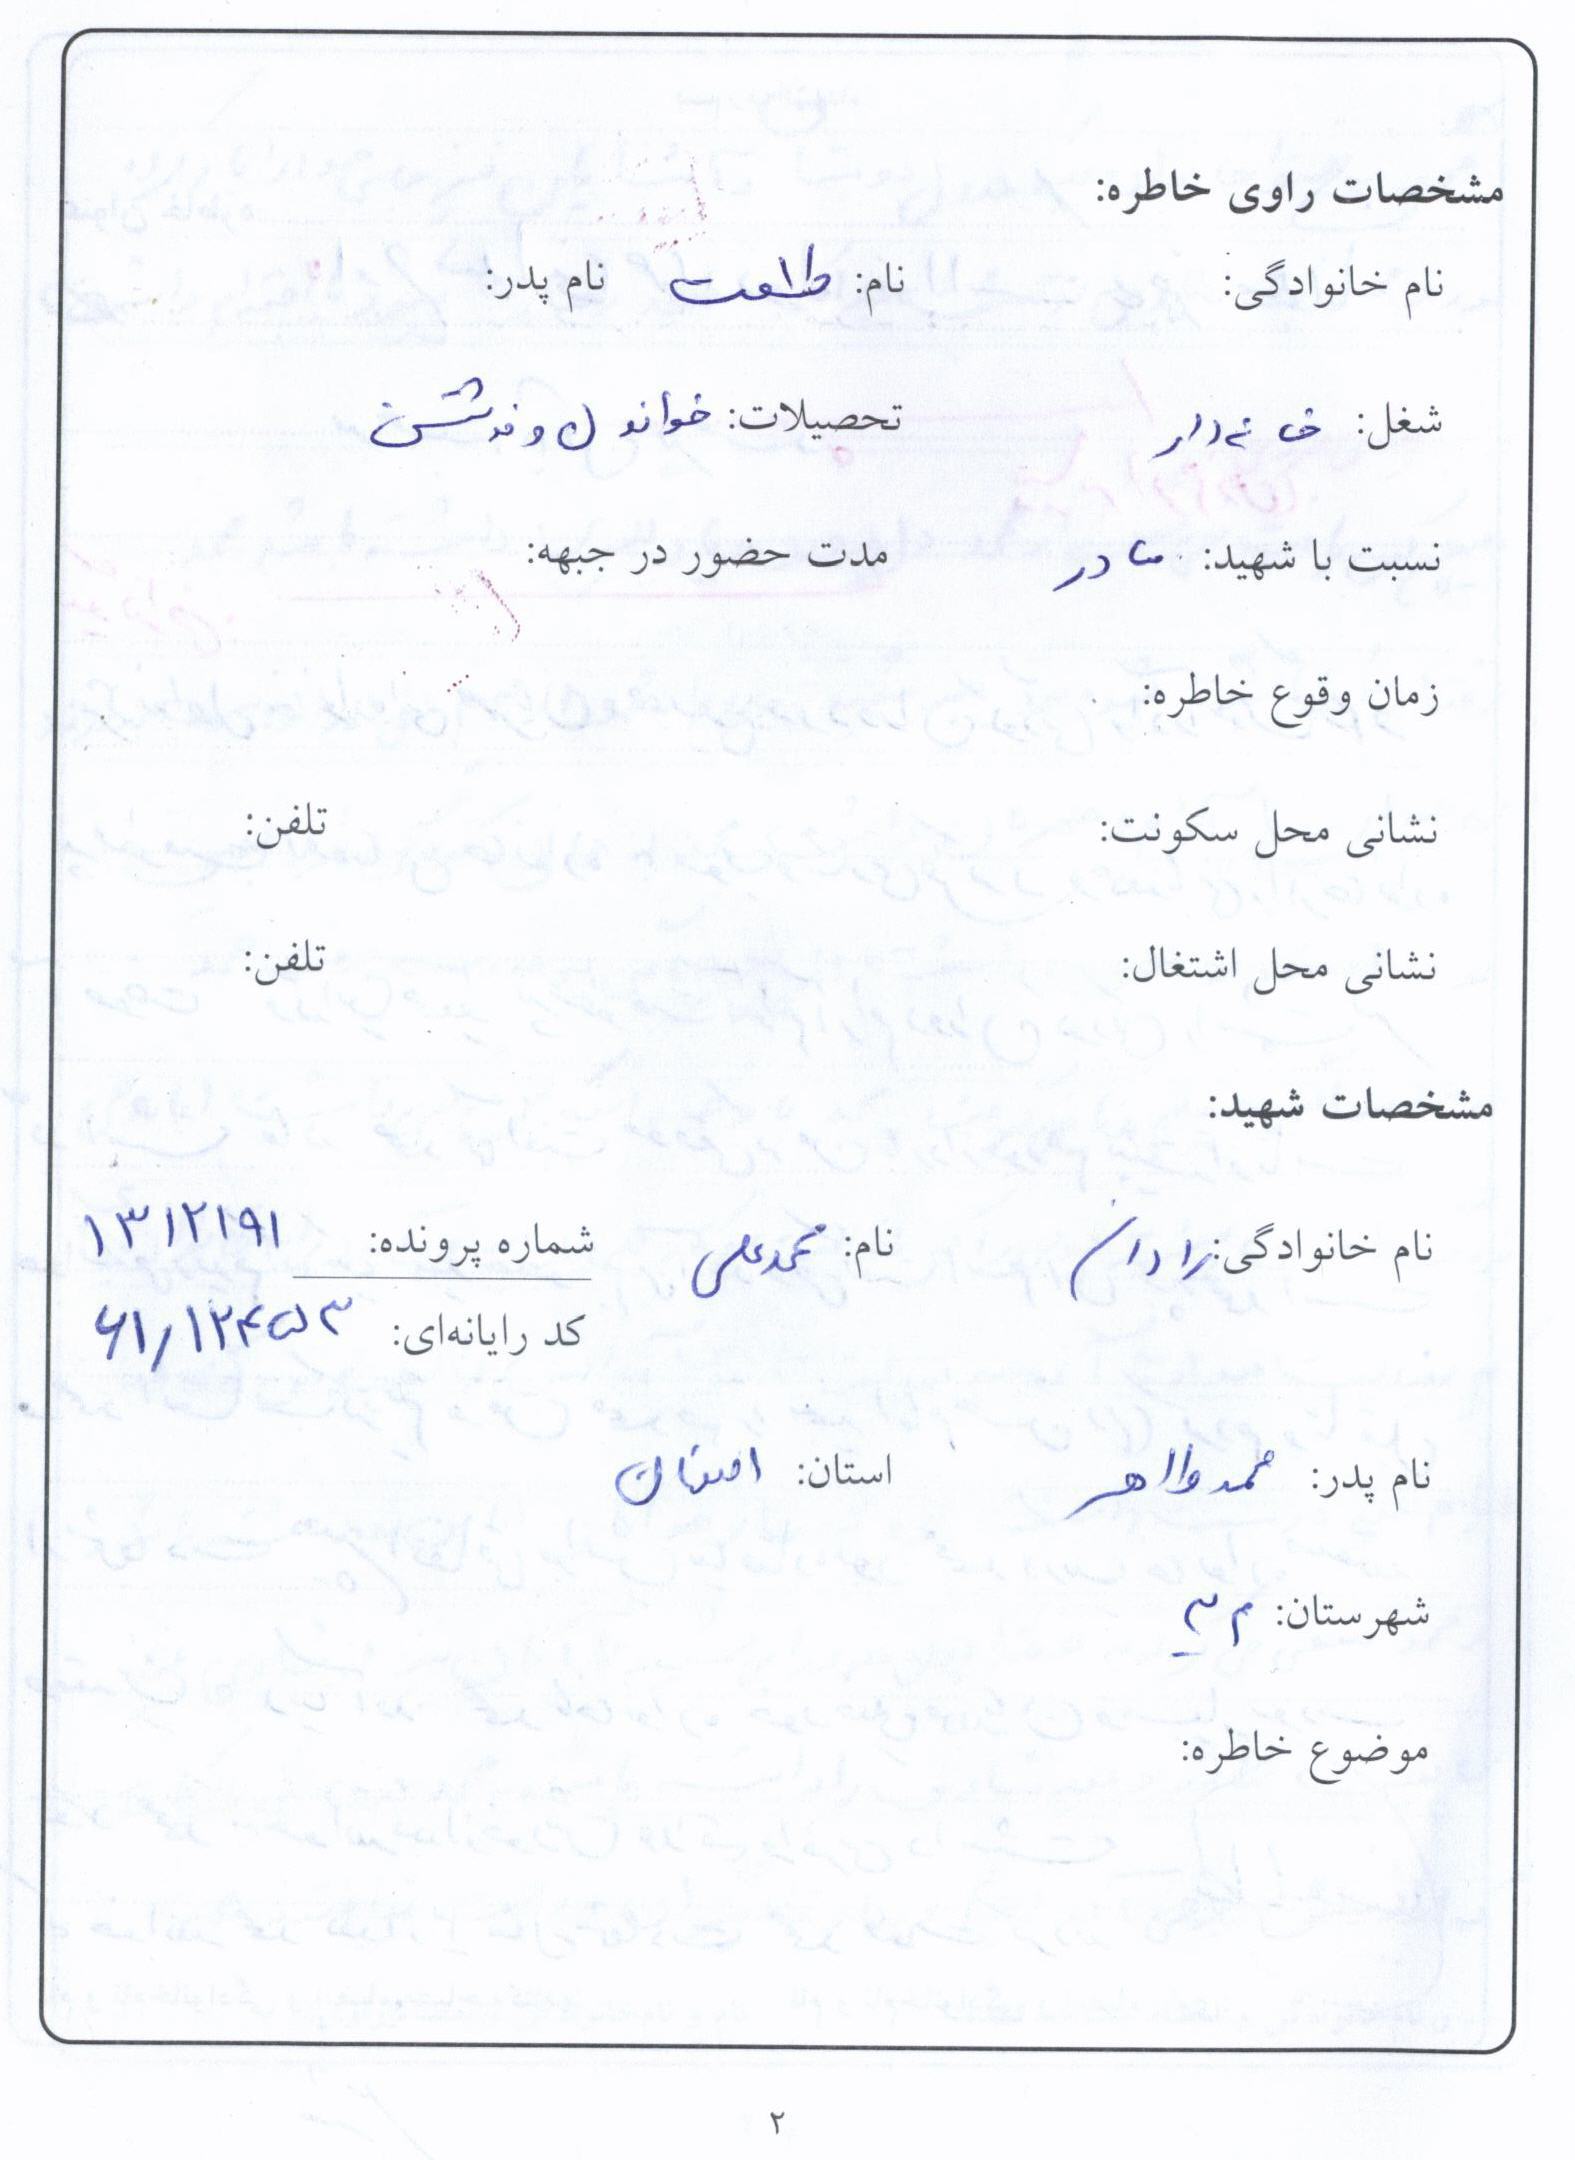 مشخصات راوی خاطره:
نام خانوادگی: نام: طلعت نام پدر:
شغل: خانه‌دار تحصیلات: خواندن و نوشتن
نسبت با شهید: مادر مدت حضور در جبهه:
زمان وقوع خاطره:
نشانی محل سکونت: تلفن:
نشانی محل اشتغال: تلفن:
مشخصات شهید:
نام خانوادگی: رادان نام: محمدعلی شماره پرونده: ۱۳۱۲۱۹۱
کد رایانه‌ای: ۶۱/۱۲۴۵۳
نام پدر: محمدطاهر استان: اصفهان
شهرستان:
موضوع خاطره:
۲